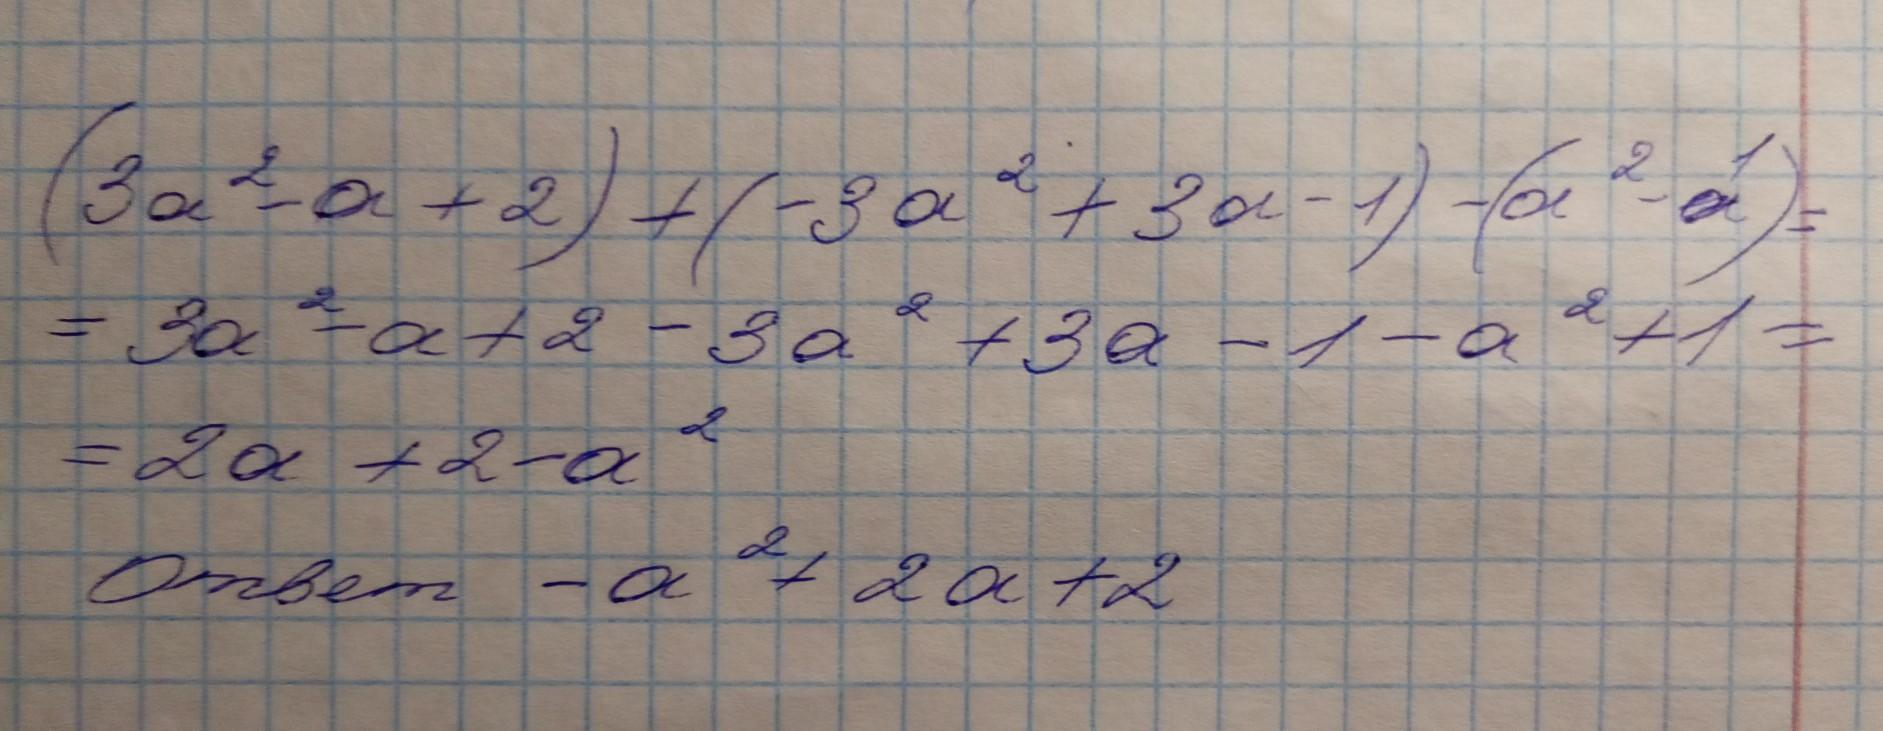 (3a²-a+2)+(-3a²+3a-1)-(a²-1)=
=3a²-a+2-3a²+3a-1-a²+1=
=2a+2-a²
Ответ -a²+2a+2